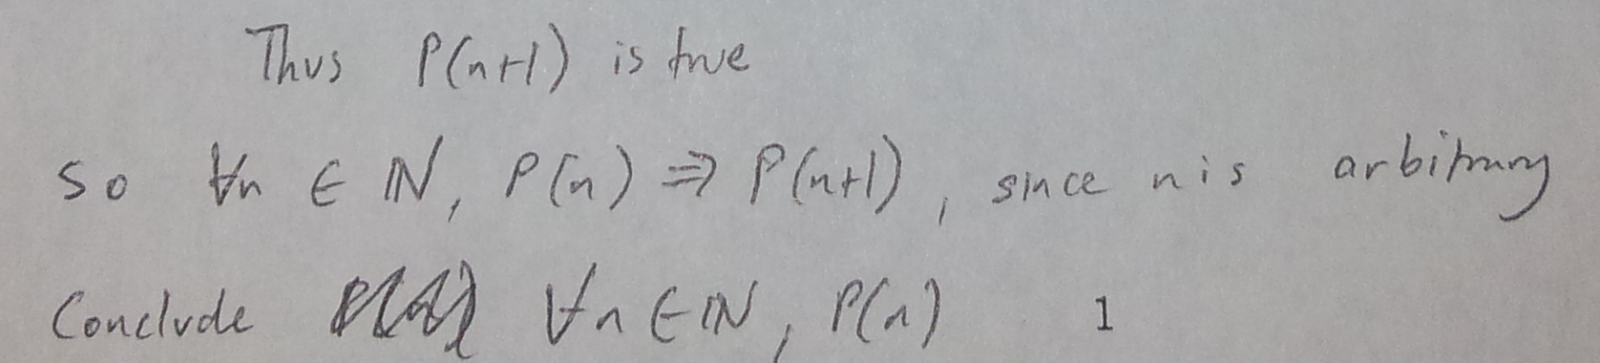 Thus P(n+1) is true
so ∀n ∈ ℕ, P(n) ⇒ P(n+1), since n is arbitrary
Conclude ∀n ∈ ℕ, P(n) 1